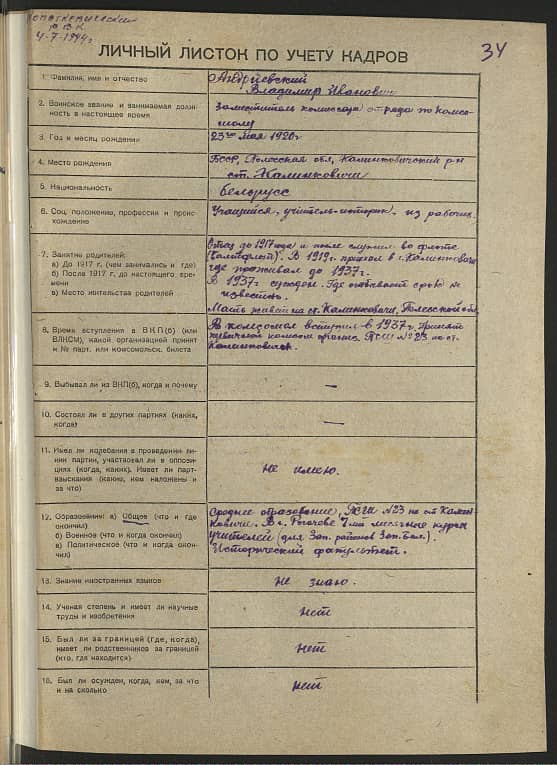 Копаткевический
Р.В.К.
4-7-1944 г.
34
ЛИЧНЫЙ ЛИСТОК ПО УЧЕТУ КАДРОВ
1. Фамилия, имя и отчество
Андриевский
Владимир Иванович
2. Воинское звание и занимаемая долж-
ность в настоящее время
Заместитель комиссара отряда по комсо-
молу
3. Год и месяц рождения
23го мая 1920 г
4. Место рождения
БССР, Полесская обл, Калинковичский р-н
ст. Калинковичи
5. Национальность
белорусс
6. Соц. положение, профессия и проис-
хождение
Учащийся, учитель-историк, из рабочих.
7. Занятие родителей:
а) До 1917 г. (чем занимались и где)
б) После 1917 г. до настоящего вре-
мени
в) Место жительства родителей
Отец до 1917 года и после служил во флоте
(Балтфлот). В 1919 г. приехал в г. Калинковичи
где проживал до 1937 г.
В 1937 г осужден. Где отбывает срок не
известно.
Мать живет на ст. Калинковичи, Полесской обл.
8. Время вступления в ВКП(б) (или
ВЛКСМ), какой организацией принят
и № парт. или комсомольск. билета
В комсомол вступил в 1937 г. Принят
первичной комсом орган. БСШ № 23 на ст.
Калинковичи.
9. Выбывал ли из ВКП(б), когда и почему
—
10. Состоял ли в других партиях (каких,
когда)
—
11. Имел ли колебания в проведении ли-
нии партии, участвовал ли в оппози-
циях (когда, каких). Имеет ли парт-
взыскания (какие, кем наложены и
за что)
Не имею.
12. Образование: а) Общее (что и где
окончил)
б) Военное (что и когда окончил)
в) Политическое (что и когда окон-
чил)
Среднее образование, БСШ № 23 на ст Калин-
ковичи. В г. Рогачеве 7 ми месячные курсы
учителей (для Зап. районов Зап. Бел.).
Исторический факультет.
13. Знание иностранных языков
не знаю.
14. Ученая степень и имеет ли научные
труды и изобретения
нет
15. Был ли за границей (где, когда),
имеет ли родственников за границей
(кто, где находится)
нет
16. Был ли осужден, когда, кем, за что
и на сколько
нет